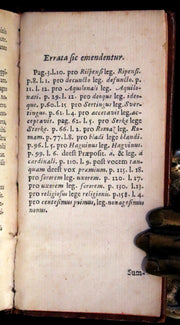 Errata sic emendentur.
Pag. 5. l. 10. pro Riipensi leg. Ripensi.
p. 8. l. 1. pro decuncto leg. defuncto. p.
11. l. 12. pro Aquilnani leg. Aquilo-
nari. p. 21. l. 1. pro donque leg. idem-
que. p. 60. l. 15. pro Sertingus leg. S
vertingus. p. 61. l. 4. pro accepat leg.
acceptat. pag. 62. l. 5. pro Serke leg.
Storke. p. 66. l. 2. pro Romaj leg. Ro-
mam. p. 77. l. 8. pro bladi lege blandi.
p. 96. l. 11. Haguinus leg. Haquinus.
p. 99. l. 6. deest Præposit. a, & leg. à
cardinali. p. 110. l. 2. post vocem tan-
quam deest vox præmium. p. 115. l. 18.
pro furarem leg. uxorem. p. 120. l. 17.
pro uxorem leg. fororem. p. 130. l. 15.
pro religiosus lege religionis. p. 158. l. 4.
pro centesimus primus, leg. nonagesimus
nonus.
Sum-